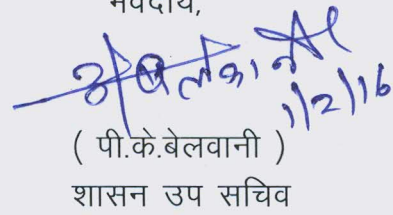 भवदीय,
1/2/16
( पी.के.बेलवानी )
शासन उप सचिव